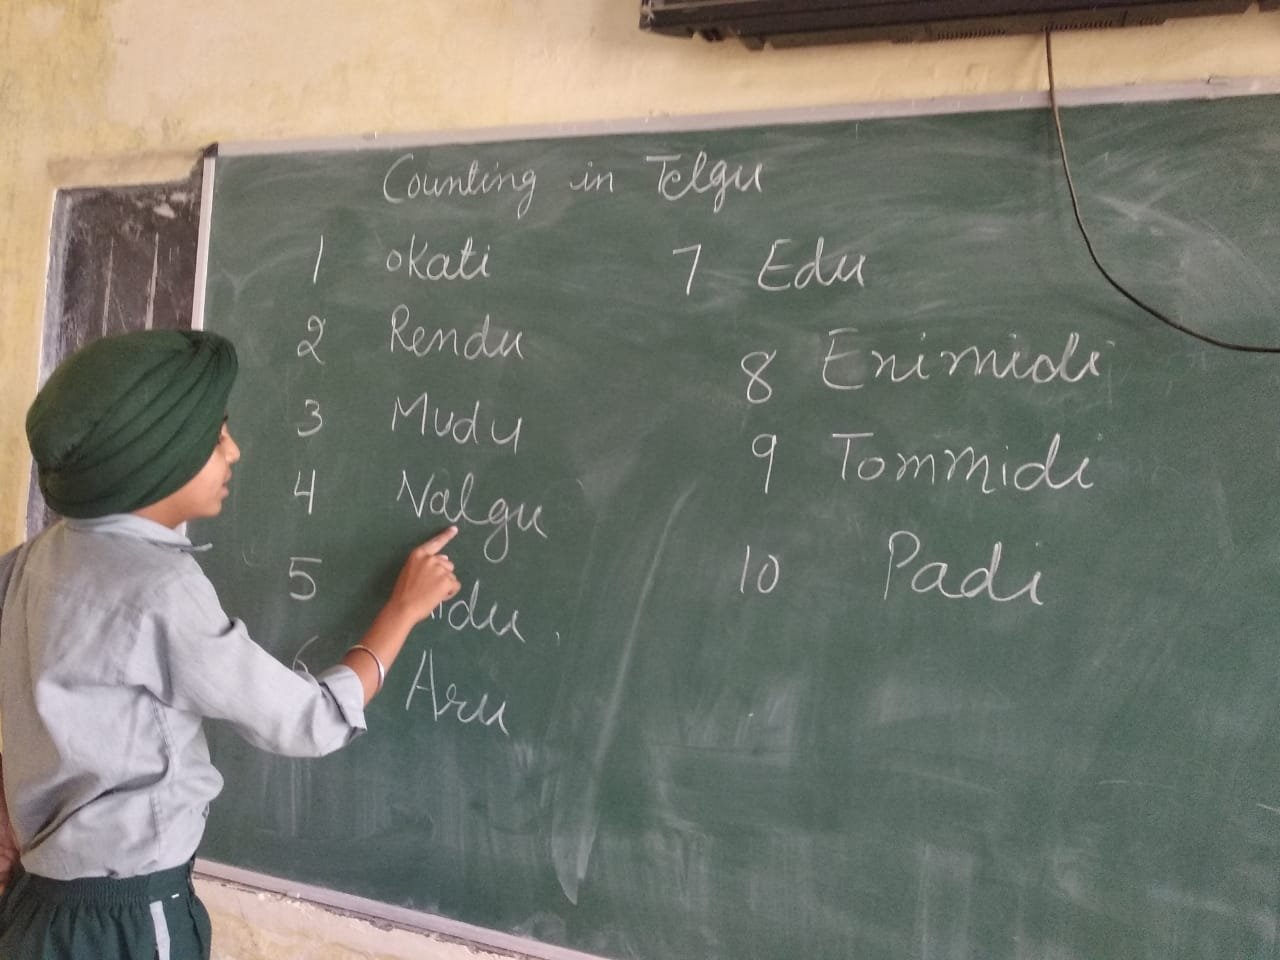 Counting in Telgu
1 okati
2 Rendu
3 Mudu
4 Nalgu
5 idu,
6 Aru
7 Edu
8 Enimidi
9 Tommidi
10 Padi